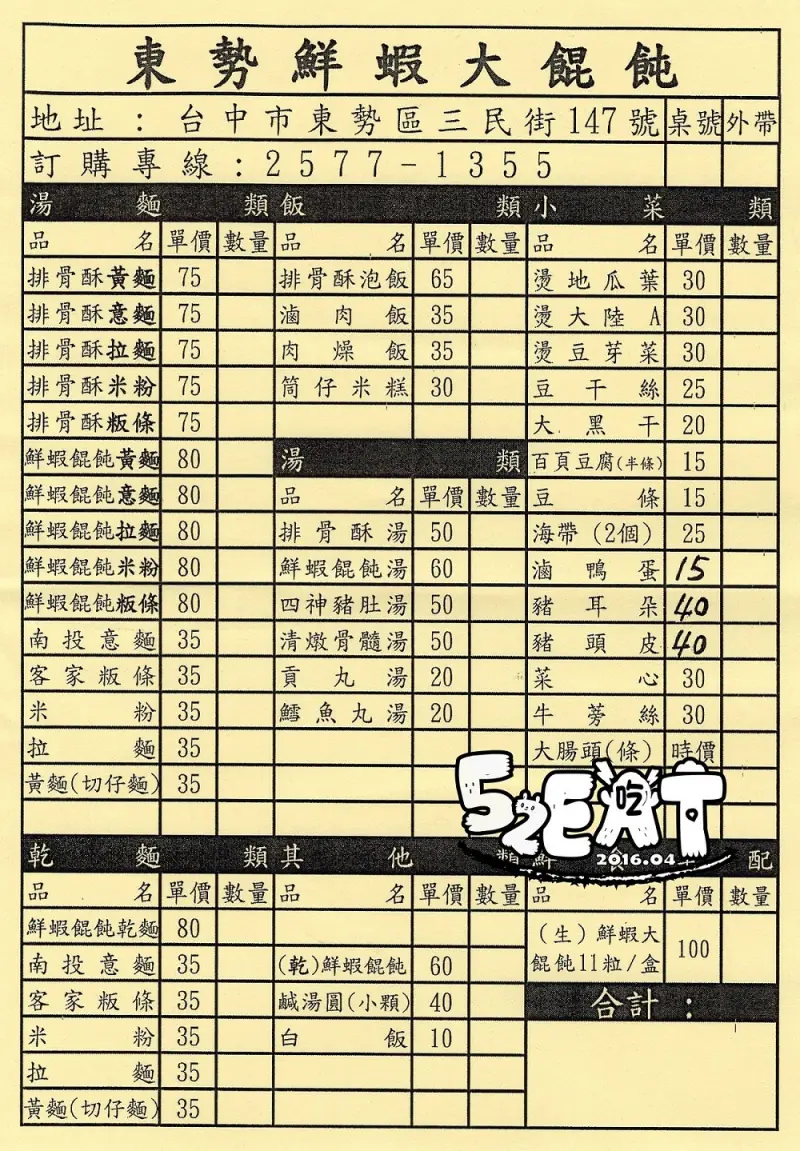 東勢鮮蝦大餛飩
地址：台中市東勢區三民街147號 桌號 外帶
訂購專線：2577-1355
湯麵類
品名 單價 數量
排骨酥黃麵 75
排骨酥意麵 75
排骨酥拉麵 75
排骨酥米粉 75
排骨酥粄條 75
鮮蝦餛飩黃麵 80
鮮蝦餛飩意麵 80
鮮蝦餛飩拉麵 80
鮮蝦餛飩米粉 80
鮮蝦餛飩粄條 80
南投意麵 35
客家粄條 35
米粉 35
拉麵 35
黃麵(切仔麵) 35
飯類
品名 單價 數量
排骨酥泡飯 65
滷肉飯 35
肉燥飯 35
筒仔米糕 30
湯類
品名 單價 數量
排骨酥湯 50
鮮蝦餛飩湯 60
四神豬肚湯 50
清燉骨髓湯 50
貢丸湯 20
鱈魚丸湯 20
小菜類
品名 單價 數量
燙地瓜葉 30
燙大陸A 30
燙豆芽菜 30
豆干絲 25
大黑干 20
百頁豆腐(半條) 15
豆條 15
海帶(2個) 25
滷鴨蛋 15
豬耳朵 40
豬頭皮 40
菜心 30
牛蒡絲 30
大腸頭(條) 時價
52EAT
吃
2016.04
乾麵類
品名 單價 數量
鮮蝦餛飩乾麵 80
南投意麵 35
客家粄條 35
米粉 35
拉麵 35
黃麵(切仔麵) 35
其他類
品名 單價 數量
(乾)鮮蝦餛飩 60
鹹湯圓(小顆) 40
白飯 10
配
品名 單價 數量
(生)鮮蝦大
餛飩11粒/盒 100
合計：